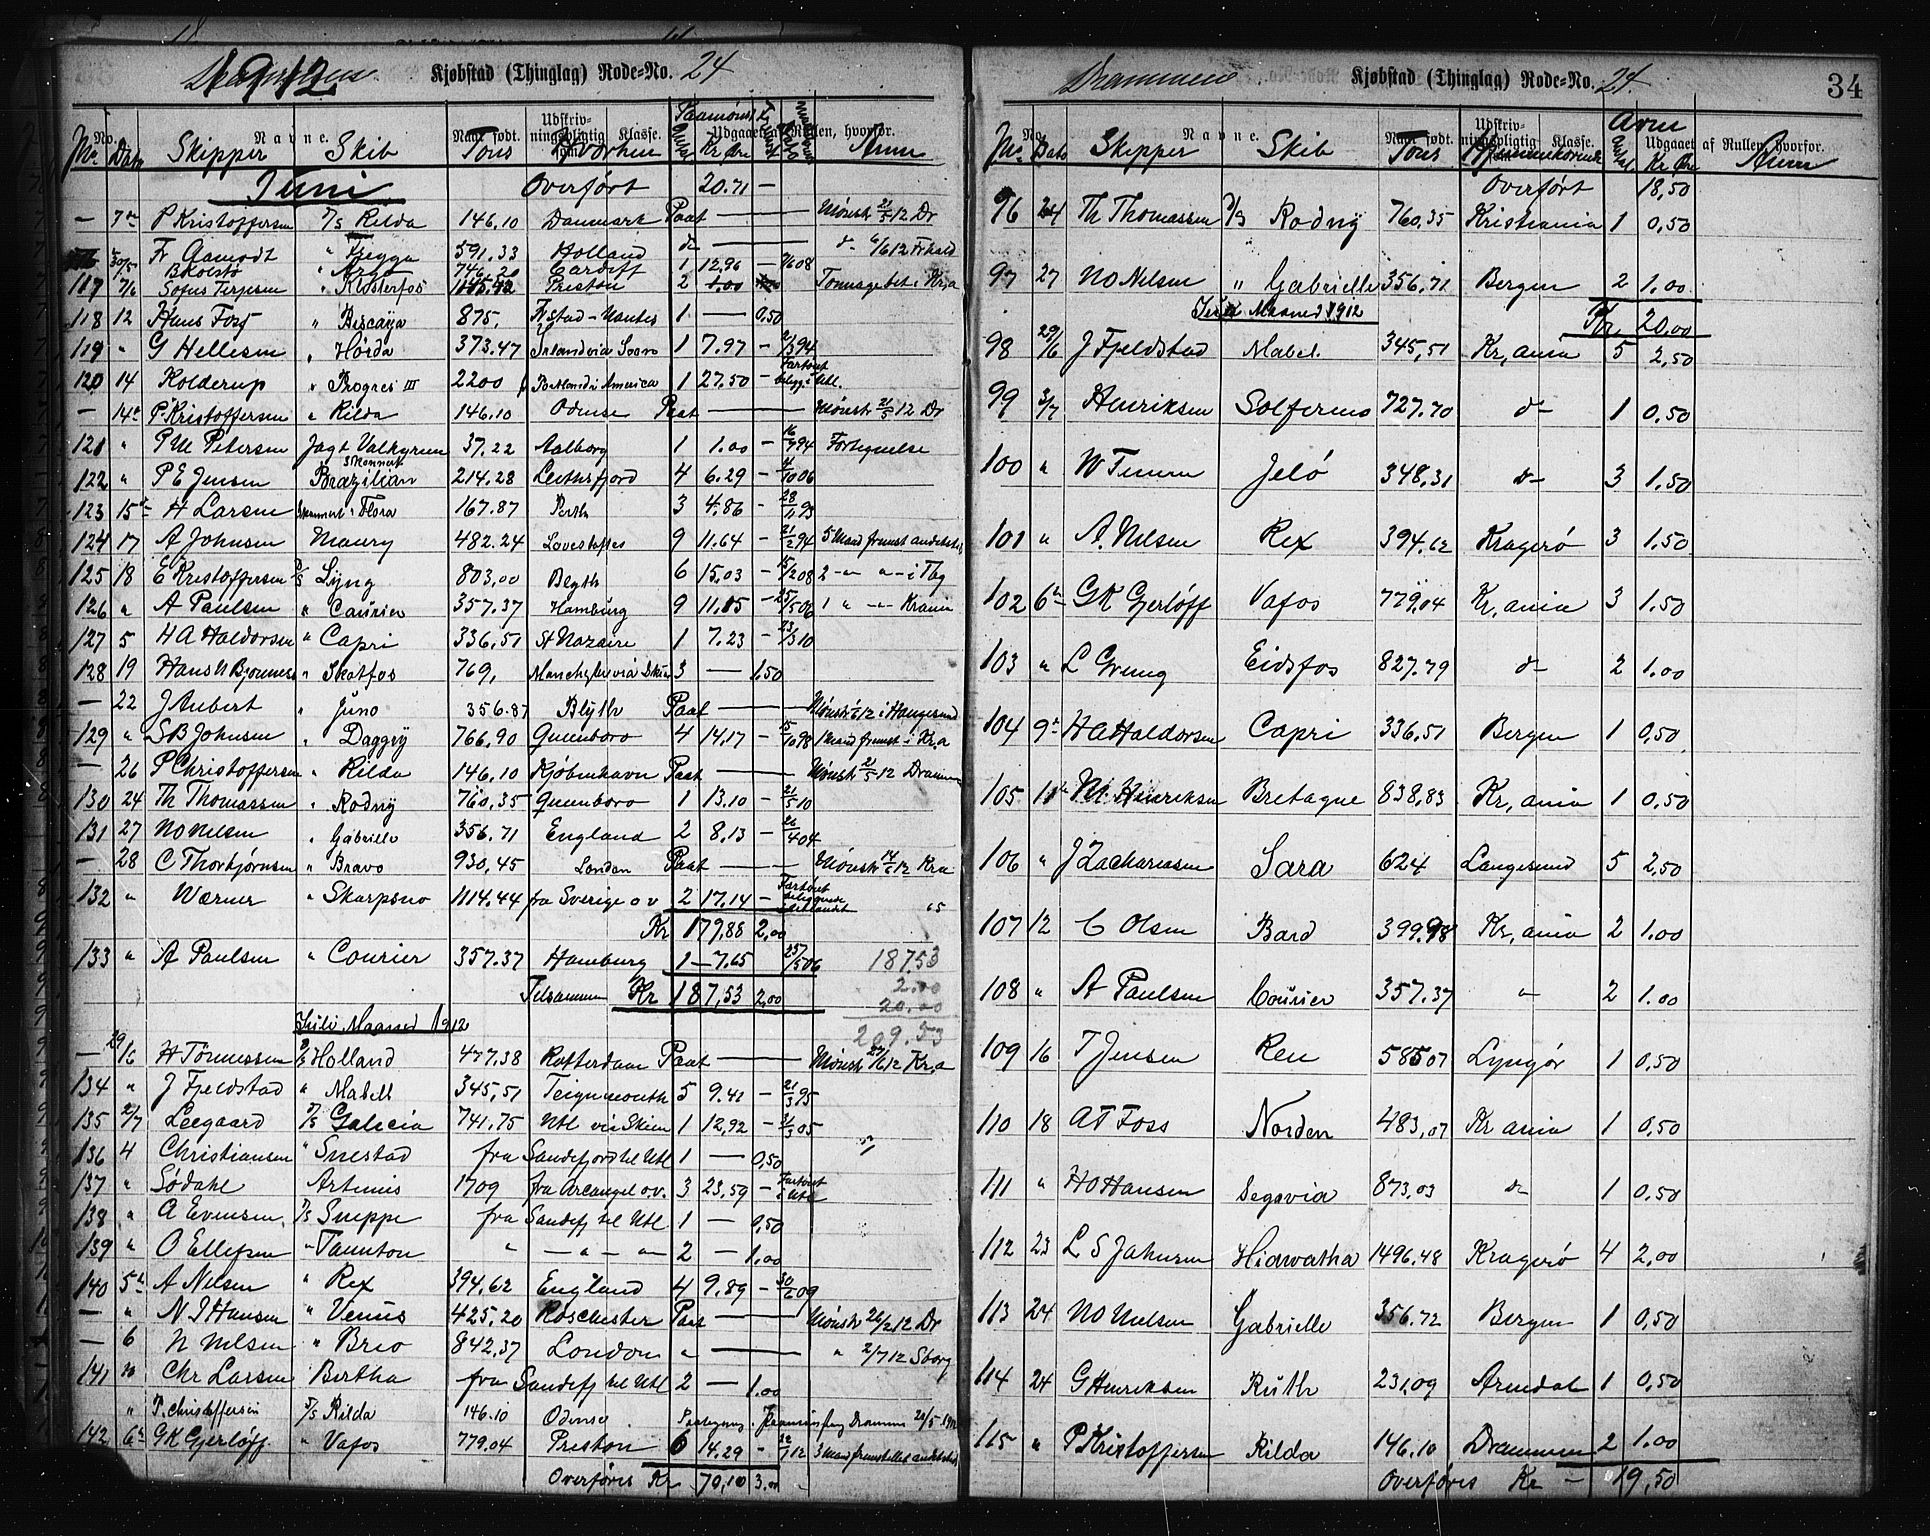 1912
Drammens Kjøbstad (Thinglag) Rode-No. 24
No. Navne. Naar født. Udskrivningspligtig Klasse. Udgaaet af Rullen, hvorfor.
No Dato Skipper Skib Tons Hvorhen Paamønst Antal Kr Øre Anm
Juni Overført 20.71 —
— 7de P Kristoffersen D/S Rilda 146.10 Danmark Paat — Mønstr 21/5 12 Dr
Fr Aamodt " Hegga 591.33 Holland d — d 6/6 12 Frhald
30/5 B Kolstø " Argo 746.20 Cardiff 1 12.96 — 1/6 08
117 7/6 Sofus Terjesen " Klosterfos Preston 2 1.00 Tonnage bet. i Kr,a
118 12 Hans Foss " Biscaya 875, Fr.stad - Nantes 1 — 0.50
119 " G Hellesen " Hörda 373.47 Island via Soon 1 7.97 — 2/3 94
120 14 Kolderup " Progres III 2200 Portland i America 1 27.50 — Fartøiet belig. i Utl.
— 14de P. Kristoffersen " Rilda 146.10 Odense Paat — Mønstr 21/5 12 Dr
121 " P M Petersen Jagt Valkyrien 37.22 Aalborg 1 1.00 — 16/7 94 Fortegnelse
122 " P E Jensen Skonnert Brazilian 214.28 Leithsfjord 4 6.29 — 2/10 06
123 15de H Larsen Skonnert " Flora 167.87 Perth 3 4.86 — 28/11 93
124 17 A Johnsen Maury 482.24 Lovestoftes 9 11.64 — 21/2 94 5 Mand frmst andetsteds
125 18 E Kristoffersen D/S Lyng 803,00 Blyth 6 15.03 — 15/12 08 2 — " " — i Tbg
126 " A Paulsen " Courier 357.37 Hamburg 9 11.15 — 25/5 06 1 " — " — Krania
127 5 H A Haldorsen " Capri 336,51 St Nazaire 1 7.23 — 23/3 10
128 19 Hans N Bjonness " Skotfos 769, Manchester via Skien 3 — 1.50
— 22 J Aubert " Juno 356.87 Blyth Paat — Mønstr 1/6 12 i Haugesund
129 " S B Johnsen " Daggry 766,90 Queenboro 4 14,17 — 15/10 98 1 Mand frmst i Kr,a
— 26 P Christoffersen " Rilda 146.10 Kjøbenhavn Paat — Mønstr 21/5 12 Drammen
130 24 Th Thomassen " Rodny 760,35 Queenboro 1 13.10 — 21/5 10
131 27 N O Nelsen " Gabrielle 356.71 England 2 8,13 — 26/4 04
— 28 C Thorbjørnsen " Bravo 930,45 London Paat — Mønstr 14/6 12 Kra
132 " Wærner " Skarpsno 1114,44 fra Sverige o v 2 17,14 — Fartøiet beliggende i Utlandet
Kr 179,88 2,00
133 " A Paulsen " Courier 357.37 Hamburg 1 — 7.65 25/5 06 187,53
Tilsammen Kr 187,53 2,00 2.00
20.00
Juli Maaned 1912 209.53
— 29/6 H Tönnessen D/S Holland 477.38 Rotterdam Paat — Mønstr 27/6 12 Kr,a
134 " J Fjeldstad " Mabell 345,51 Teignmouth 5 9.41 — 21/3 95
135 2/7 Leegaard D/S Galicia 741.75 Utl via Skien 1 12,92 — 2/3 05
136 4 Christiansen " Snestad fra Sandefjord til Utl 1 — 0,50
137 " Sødahl Artemis 1709 fra Arcangel o.v. 3 23,59 — Fartøiet i Utl
138 " A Evensen D/S Sneppe fra Sandefj til Utl 1 — 0,50
139 " O Ellefsen " Taunton " — " — " 2 — 1.00
140 5te A Nelsen " Rex 394,62 England 4 9.89 — 30/6 09
— " N J Hansen " Venus 425,20 Roschester Paat — Mønstr 26/2 12 Dr
— 6 N Nelsen " Brio 842,37 London " — " 2/7 12 Sborg
141 " Chr Larsen Bertha fra Sandefj til Utl 2 — 1.00
" P. Christoffersen D/S Rilda 146.10 Odense Paategning. Paamønstring Drammen 20/5 1912
142 6te G K Gjerløff " Vafos 779.04 Preston 6 14.29 — 22/7 12 3 Mand fremstillet andetsteds
Overføres Kr 70,10 3.00
Drammens Kjøbstad (Thinglag) Rode-No. 24. 34
No. Navne. Naar født. Udskrivningspligtig Klasse. Udgaaet af Rullen, hvorfor.
No Dato Skipper Skib Tons Hjemmehørende Antal Kr Øre Anm
Overført 18,50
96 24 Th Thomassen D/S Rodny 760,35 Kristiania 1 0,50
97 27 N O Nelsen " Gabrielle 356,71 Bergen 2 1.00
Juli Maaned 1912 Kr 20,00
98 29/6 J Fjeldstad Mabel. 345,51 Kr,ania 5 2,50
99 3/7 Henriksen Solferino 727.70 d — 1 0,50
100 " W Timm Jelö 348,31 d — 3 1.50
101 " A. Nelsen Rex 394.62 Kragerø 3 1.50
102 6te G K Gjerløff Vafos 779,04 Kr,ania 3 1.50
103 " L Greng Eidsfos 827.79 d — 2 1.00
104 9de H A Haldorsen Capri 336,51 Bergen 1 0,50
105 11te M. Henriksen Bretagne 838,83 Kr,ania 1 0,50
106 " J Zachariasen Sara 624 Langesund 5 2,50
107 12 C Olsen Bard 399.98 Kr,ania 2 1.00
108 " A Paulsen Courier 357.37 " 2 1.00
109 16 T Jensen Ren 585 07 Lyngør 1 0,50
110 18 A T Foss Norden 483,07 Kr ania 1 0,50
111 " H O Hansen Segovia 873,03 d — 1 0,50
112 23 L S Jahnsen Hiawatha 1496.48 Kragerø 4 2,00
113 24 N O Nielsen Gabrielle 356.72 Bergen 1 0,50
114 24 G Henriksen Ruth 231,09 Arendal 1 0,50
115 " P Kristoffersen Rilda 146.10 Drammen 2 1.00
Overføres Kr — 19,50